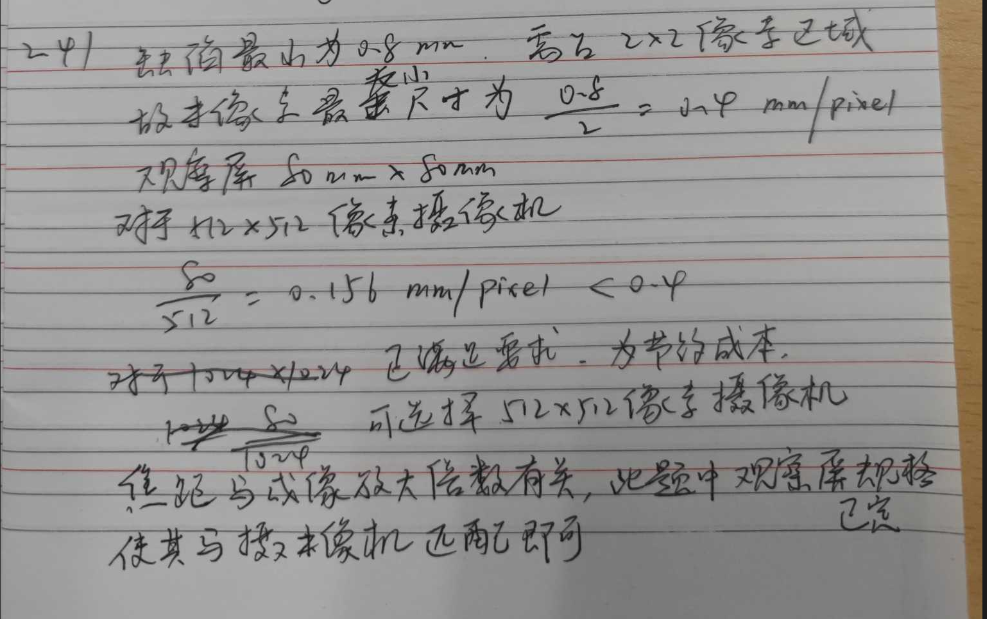 2-41 缺陷最小为0.8mm. 需占2×2像素区域
故求像素最小尺寸为 0.8/2 = 0.4 mm/pixel
观察屏 80mm×80mm
对于512×512像素摄像机
80/512 = 0.156 mm/pixel < 0.4
对于1024×1024 已满足要求. 为节约成本.
1024 80/1024 可选择512×512像素摄像机
焦距与成像放大倍数有关, 此题中观察屏规格
已定
使其与摄像机匹配即可